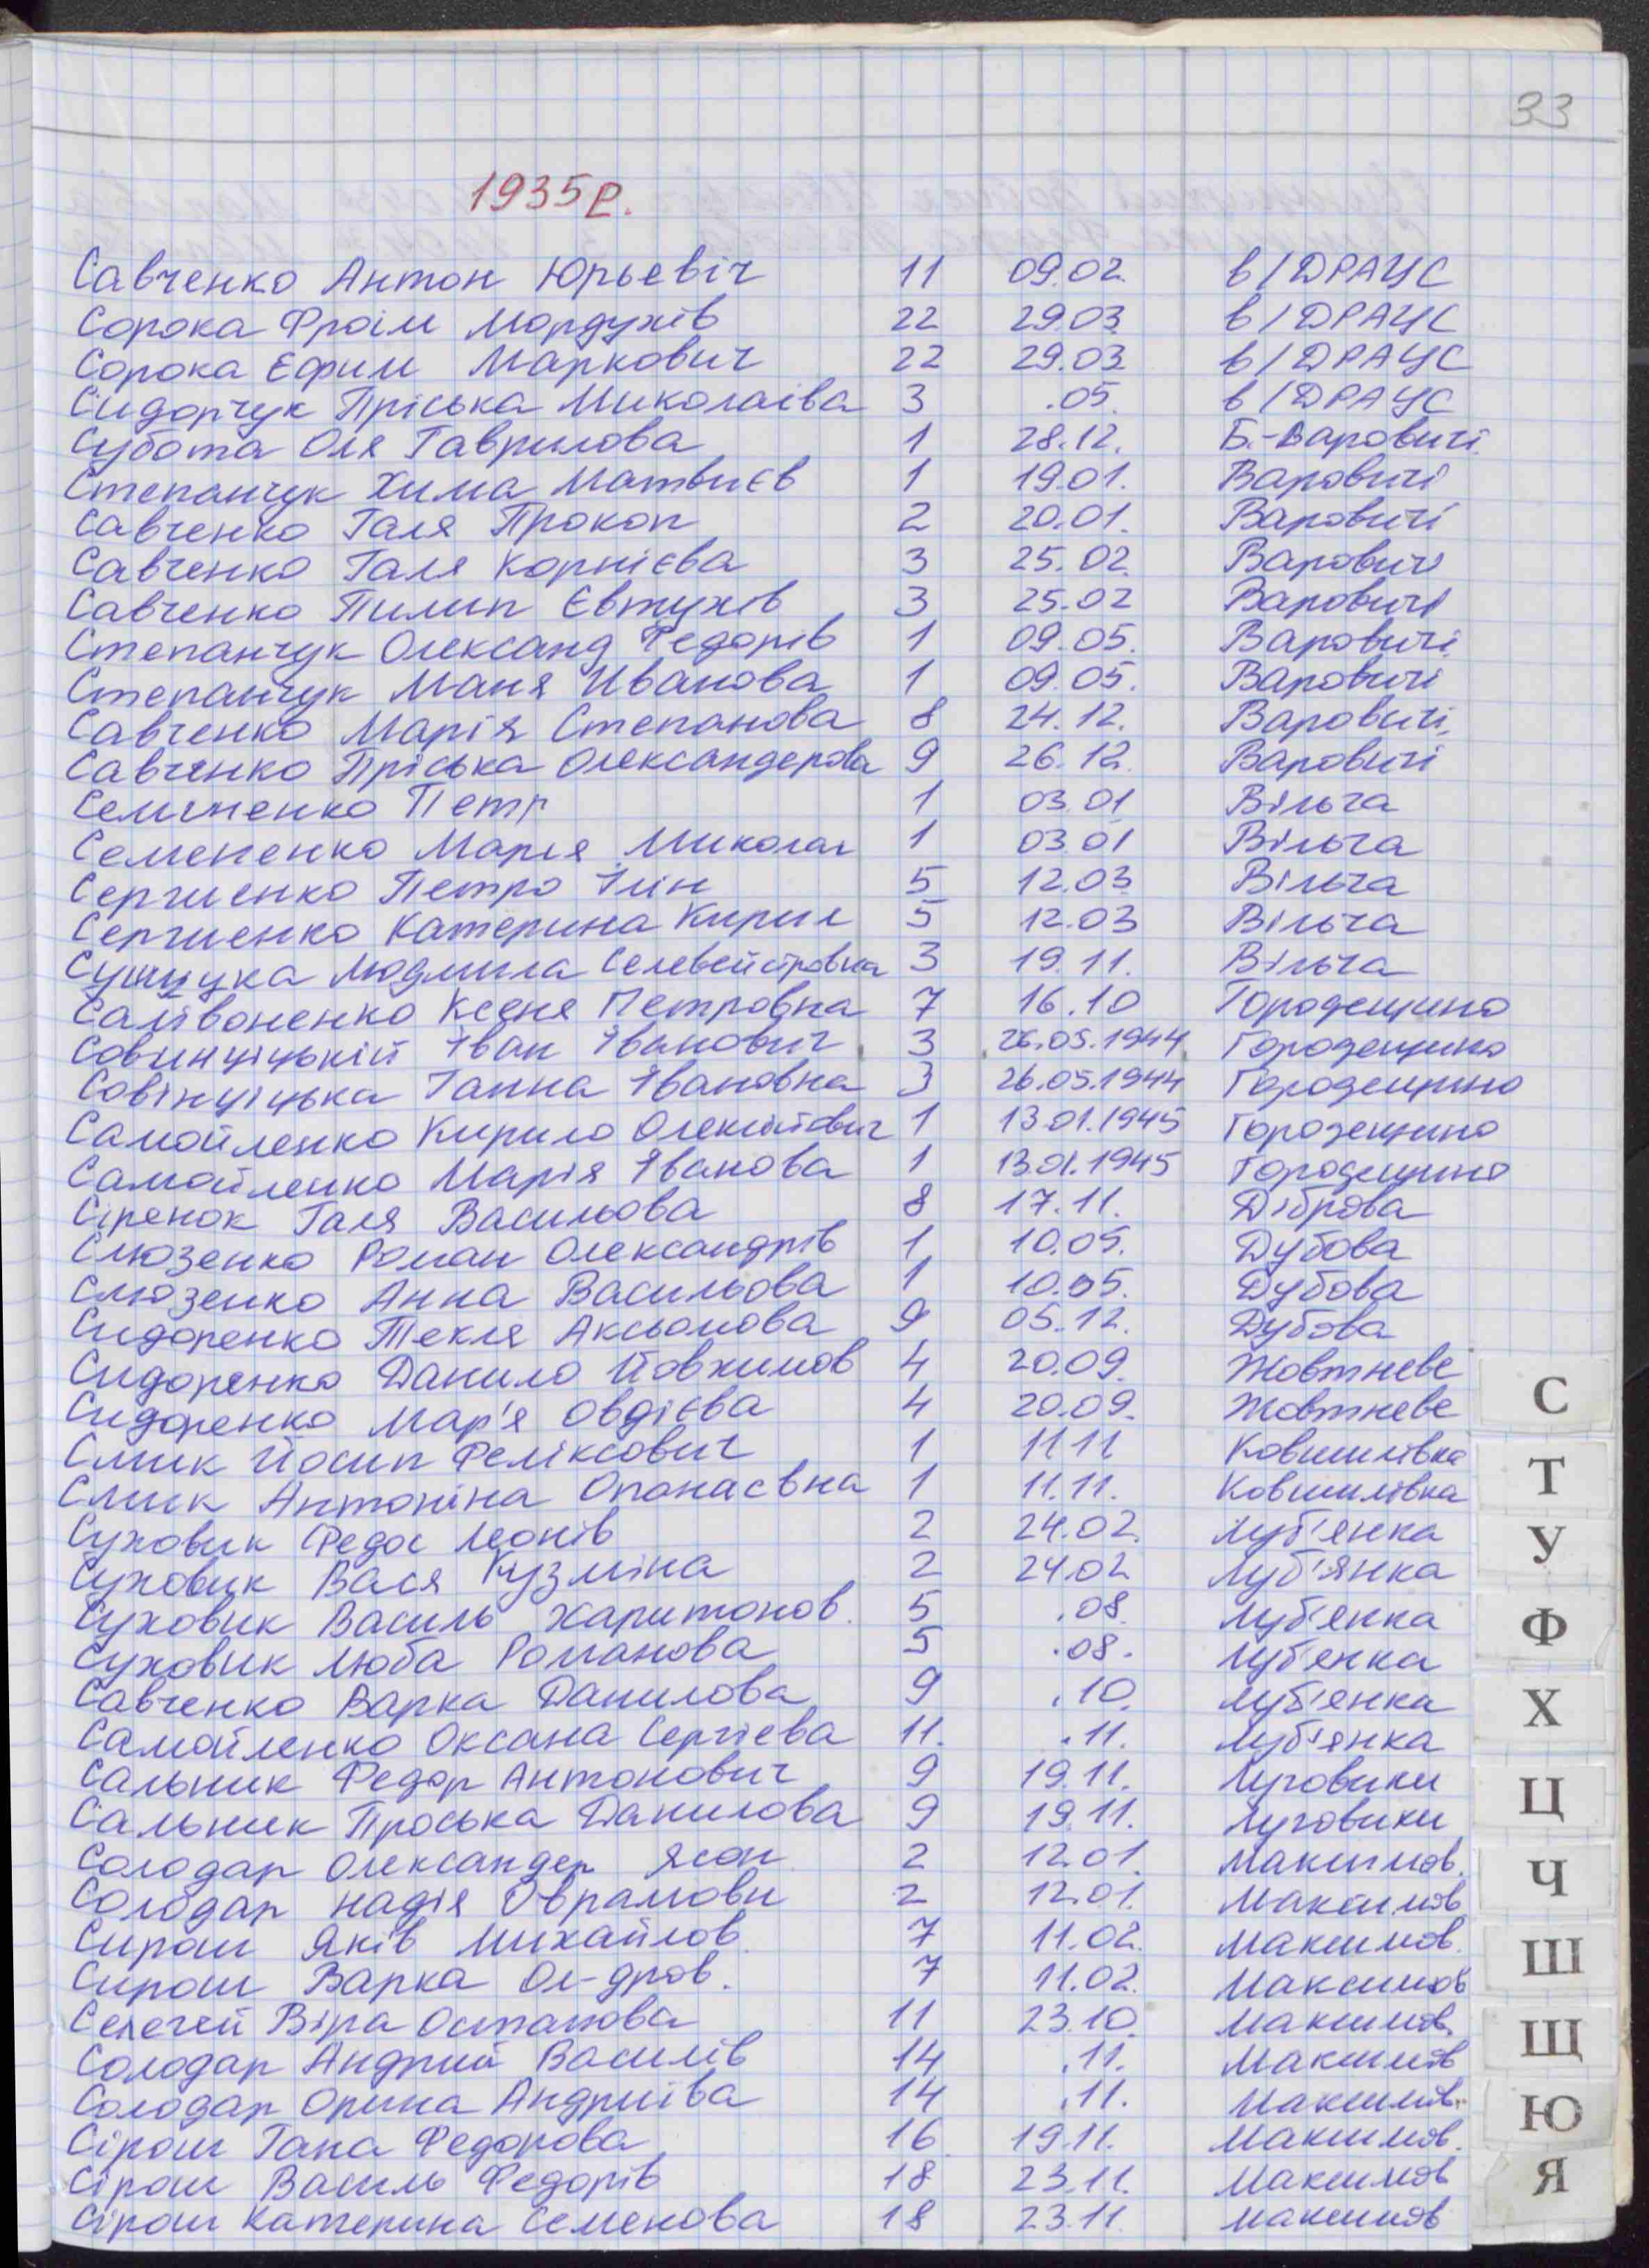 33
1935 р.
Савченко Антон Юрьевіч 11 09.02. в/ДРАЦС
Сорока Фроім Мордухів 22 29.03 в/ДРАЦС
Сорока Ефим Маркович 22 29.03 в/ДРАЦС
Сидорчук Пріська Миколаіва 3 .05. в/ДРАЦС
Субота Оля Гаврилова 1 28.12. Б.-Варовичі
Степанчук Хима Матвиєв 1 19.01. Варовичі
Савченко Галя Прокоп 2 20.01. Варовичі
Савченко Галя Корнієва 3 25.02. Варовичі
Савченко Пилип Євтухів 3 25.02 Варовичі
Степанчук Олександ Федорів 1 09.05. Варовичі
Степанчук Маня Иванова 1 09.05. Варовичі
Савченко Марія Степанова 8 24.12. Варовичі
Савченко Пріська Олександерова 9 26.12. Варовичі
Семененко Петр 1 03.01 Вільча
Семененко Марія Микола 1 03.01 Вільча
Сергиенко Петро Ілін 5 12.03 Вільча
Сергиенко Катерина Кирил 5 12.03 Вільча
Людмила Селевейстровна 3 19.11. Вільча
Самвоненко Ксеня Петровна 7 16.10 Городещино
Совинціцькій Іван Іванович 3 26.05.1944 Городещино
Совінціцька Ганна Івановна 3 26.05.1944 Городещино
Самойленко Кирило Олексійович 1 13.01.1945 Городещино
Самойленко Марія Іванова 1 13.01.1945 Городещино
Сіренок Галя Васильова 8 17.11. Діброва
Слюзенко Роман Олександрів 1 10.05. Дубова
Слюзенко Анна Васильова 1 10.05. Дубова
Сидоренко Текля Аксьонова 9 05.12. Дубова
Сидоренко Данило Йовхимов 4 20.09. Жовтневе
Сидоренко Мар'я Овдієва 4 20.09. Жовтневе
Смик Йосип Феліксович 1 11.11 Ковшилівка
Смик Антоніна Опанасвна 1 11.11. Ковшилівка
Суховик Федос Леонів 2 24.02. Луб'янка
Суховик Вася Кузміна 2 24.02 Луб'янка
Суховик Василь Харитонов. 5 .08. Луб'янка
Суховик Люба Романова 5 .08. Луб'янка
Савченко Варка Данилова 9 .10. Луб'янка
Самойленко Оксана Сергієва 11. .11. Луб'янка
Сальник Федор Антонович 9 19.11. Луговики
Сальник Проська Данилова 9 19.11. Луговики
Солодар Олександер Ясон 2 12.01. Максимов.
Солодар Надія Оврамовн 2 12.01. Максимов
Сирош Яків Михайлов. 7 11.02. Максимов.
Сирош Варка Ол-дров. 7 11.02. Максимов
Селегей Віра Остапова 11 23.10. Максимов.
Солодар Андрий Василів 14 .11. Максимов
Солодар Орина Андриїва 14 .11. Максимов.
Сірош Гана Федорова 16 19.11. Максимов.
Сірош Василь Федорів 18 23.11. Максимов
Сірош Катерина Семенова 18 23.11. Максимов
С
Т
У
Ф
Х
Ц
Ч
Ш
Щ
Ю
Я